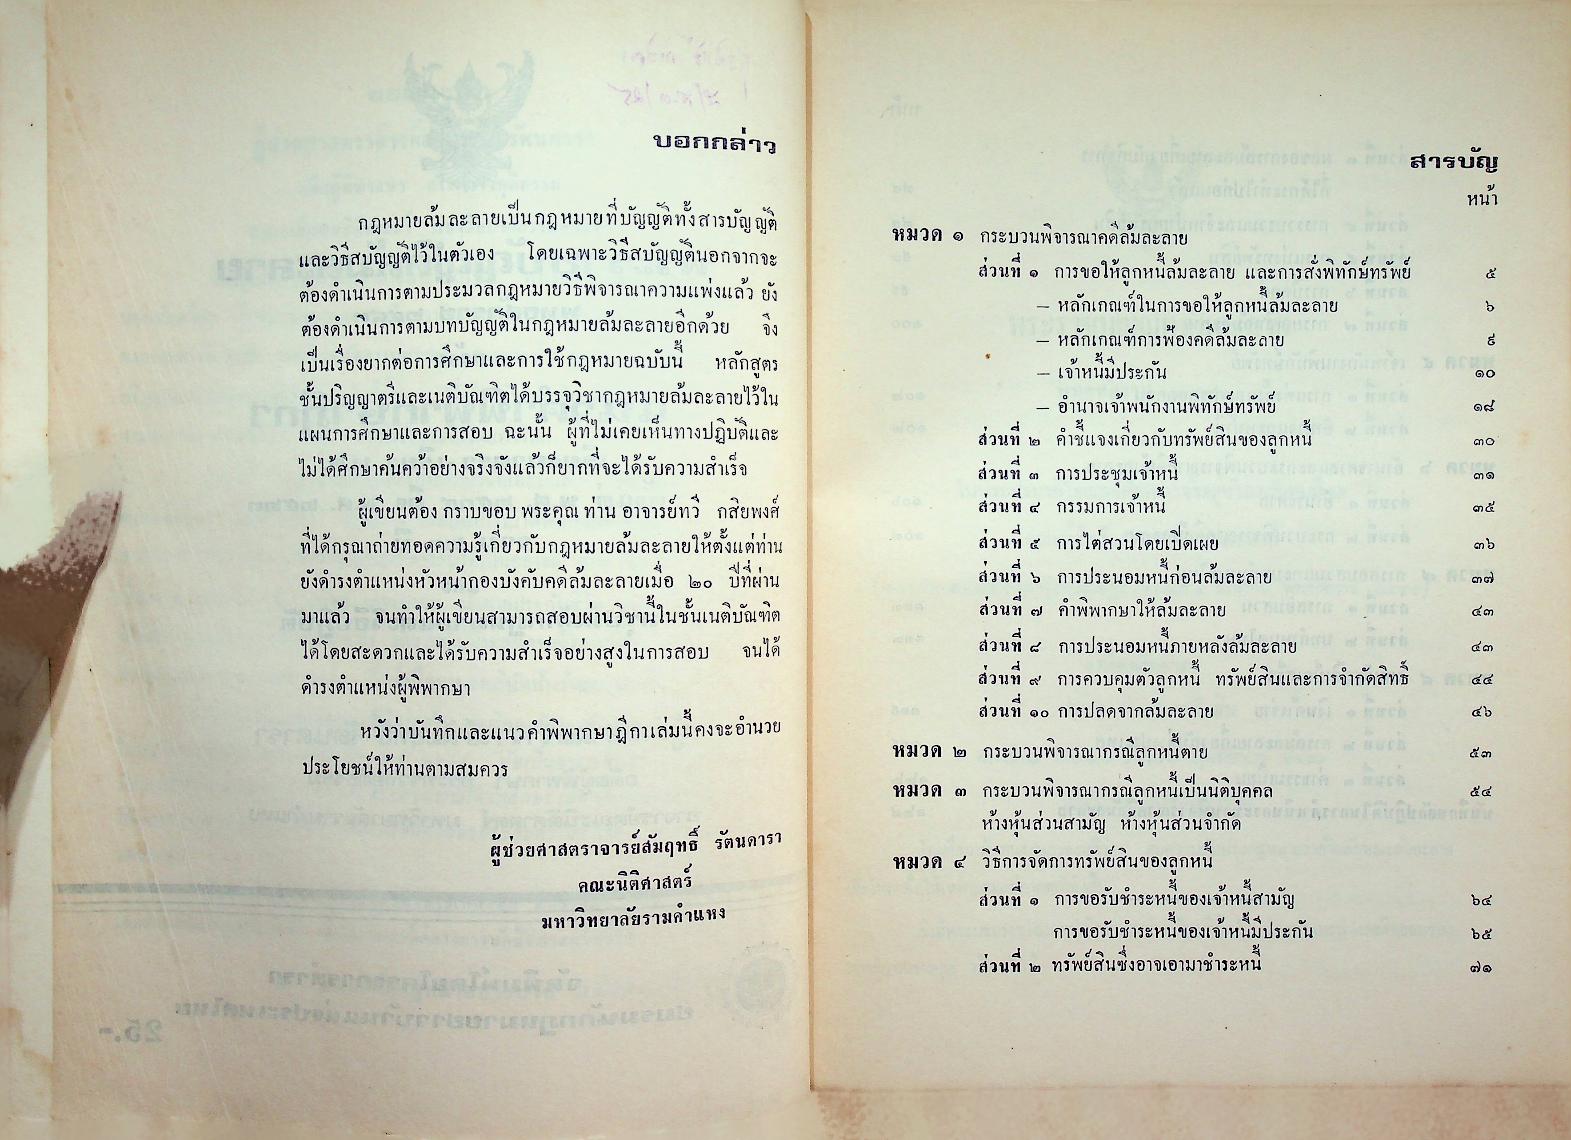 บอกกล่าว
กฎหมายล้มละลายเป็นกฎหมายที่บัญญัติทั้งสารบัญญัติ
และวิธีสบัญญัติไว้ในตัวเอง โดยเฉพาะวิธีสบัญญัตินอกจากจะ
ต้องดำเนินการตามประมวลกฎหมายวิธีพิจารณาความแพ่งแล้ว ยัง
ต้องดำเนินการตามบทบัญญัติในกฎหมายล้มละลายอีกด้วย จึง
เป็นเรื่องยากต่อการศึกษาและการใช้กฎหมายฉบับนี้ หลักสูตร
ชั้นปริญญาตรีและเนติบัณฑิตได้บรรจุวิชากฎหมายล้มละลายไว้ใน
แผนการศึกษาและการสอบ ฉะนั้น ผู้ที่ไม่เคยเห็นทางปฏิบัติและ
ไม่ได้ศึกษาค้นคว้าอย่างจริงจังแล้วก็ยากที่จะได้รับความสำเร็จ
ผู้เขียนต้อง กราบขอบ พระคุณ ท่าน อาจารย์ทวี กสิยพงศ์
ที่ได้กรุณาถ่ายทอดความรู้เกี่ยวกับกฎหมายล้มละลายให้ตั้งแต่ท่าน
ยังดำรงตำแหน่งหัวหน้ากองบังคับคดีล้มละลายเมื่อ ๒๐ ปีที่ผ่าน
มาแล้ว จนทำให้ผู้เขียนสามารถสอบผ่านวิชานี้ในชั้นเนติบัณฑิต
ได้โดยสะดวกและได้รับความสำเร็จอย่างสูงในการสอบ จนได้
ดำรงตำแหน่งผู้พิพากษา
หวังว่าบันทึกและแนวคำพิพากษาฎีกาเล่มนี้คงจะอำนวย
ประโยชน์ให้ท่านตามสมควร
ผู้ช่วยศาสตราจารย์สัมฤทธิ์ รัตนดารา
คณะนิติศาสตร์
มหาวิทยาลัยรามคำแหง
สารบัญ
หน้า
หมวด ๑ กระบวนพิจารณาคดีล้มละลาย
ส่วนที่ ๑ การขอให้ลูกหนี้ล้มละลาย และการสั่งพิทักษ์ทรัพย์ ๕
– หลักเกณฑ์ในการขอให้ลูกหนี้ล้มละลาย ๖
– หลักเกณฑ์การฟ้องคดีล้มละลาย ๙
– เจ้าหนี้มีประกัน ๑๐
– อำนาจเจ้าพนักงานพิทักษ์ทรัพย์ ๑๘
ส่วนที่ ๒ คำชี้แจงเกี่ยวกับทรัพย์สินของลูกหนี้ ๓๐
ส่วนที่ ๓ การประชุมเจ้าหนี้ ๓๑
ส่วนที่ ๔ กรรมการเจ้าหนี้ ๓๕
ส่วนที่ ๕ การไต่สวนโดยเปิดเผย ๓๖
ส่วนที่ ๖ การประนอมหนี้ก่อนล้มละลาย ๓๗
ส่วนที่ ๗ คำพิพากษาให้ล้มละลาย ๔๓
ส่วนที่ ๘ การประนอมหนี้ภายหลังล้มละลาย ๔๓
ส่วนที่ ๙ การควบคุมตัวลูกหนี้ ทรัพย์สินและการจำกัดสิทธิ์ ๔๔
ส่วนที่ ๑๐ การปลดจากล้มละลาย ๔๖
หมวด ๒ กระบวนพิจารณากรณีลูกหนี้ตาย ๕๓
หมวด ๓ กระบวนพิจารณากรณีลูกหนี้เป็นนิติบุคคล ๕๔
ห้างหุ้นส่วนสามัญ ห้างหุ้นส่วนจำกัด
หมวด ๔ วิธีการจัดการทรัพย์สินของลูกหนี้
ส่วนที่ ๑ การขอรับชำระหนี้ของเจ้าหนี้สามัญ ๖๔
การขอรับชำระหนี้ของเจ้าหนี้มีประกัน ๖๕
ส่วนที่ ๒ ทรัพย์สินซึ่งอาจเอามาชำระหนี้ ๗๑